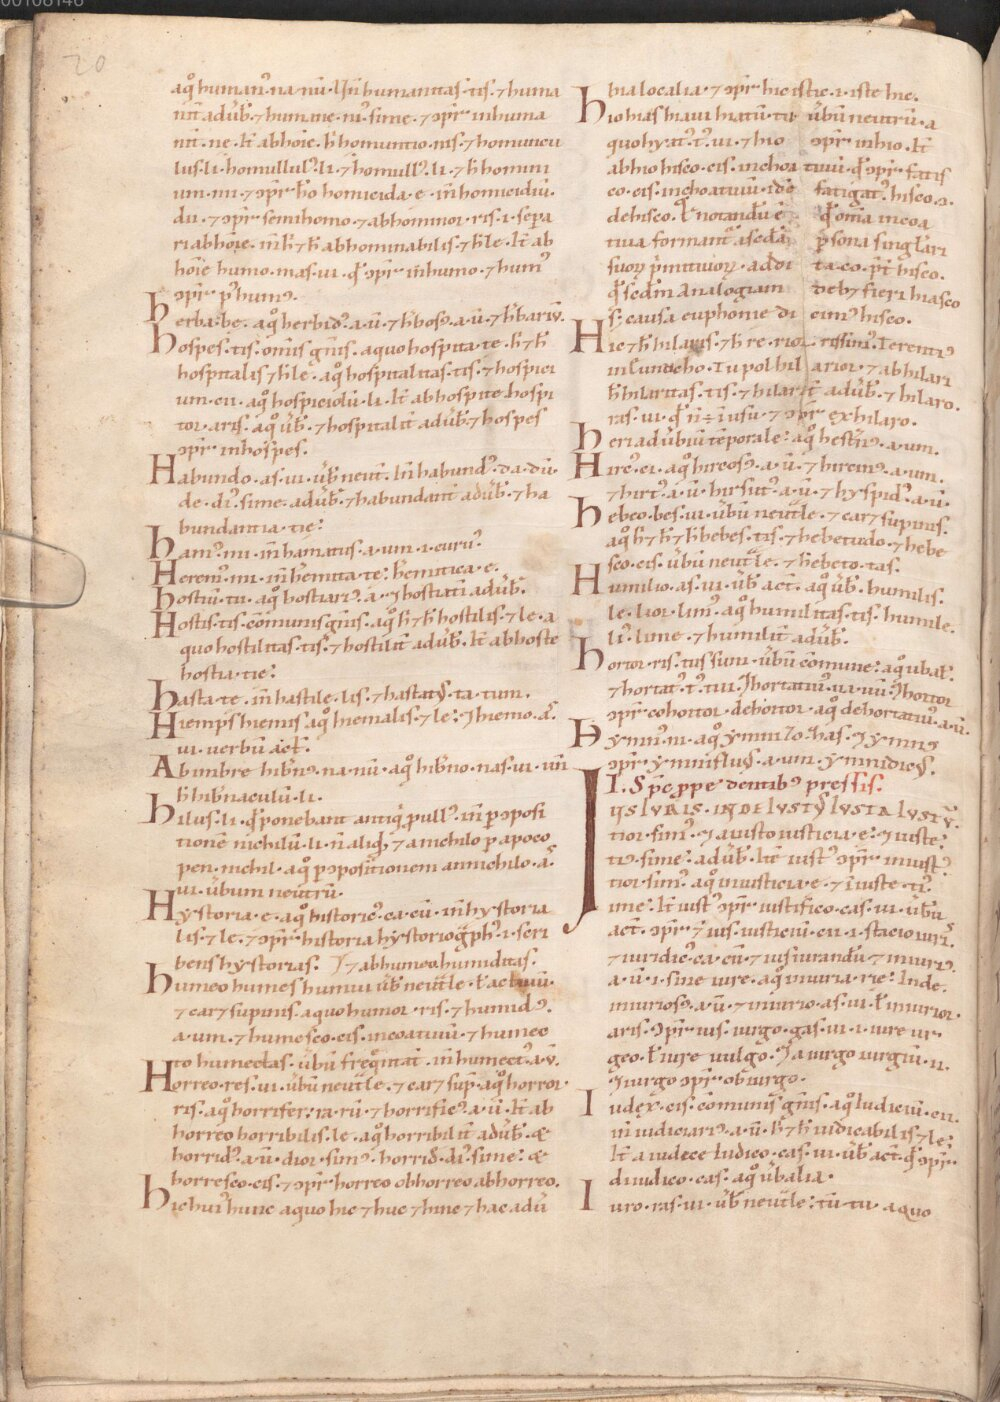 20
aq̊ human᷒ na nū. Jn̄ humanitas. tis. ⁊ huma
nit̄ adūb̄. ⁊ humane. ni᷒. sime. ⁊ ɔpr̄ inhuma
nit̄. ne. It̄ ab hoīe. h̄ homuntio. nis. ⁊ homuncu
lus. li. homullul᷒. li. ⁊ homull᷒. li. ⁊ h̄ homini
um. ni. ⁊ ɔpr̄ h̄o homicida. e. in̄ homicidiū.
dii. ⁊ ɔpr̄ semihomo. ⁊ abhominor. ris. i. sepa
ri abhoīe. in̄ h̄ ⁊ h̄ abhominabilis. ⁊ h̄ le. It̄ ab
hoīe humo. mas. ui. q̄ ɔpr̄ inhumo. ⁊ hum᷒
ɔpr̄ p᷒hum᷒.
herba. be. aq̊ herbid᷒. a. ū. ⁊ h̄bos᷒. a. ū. ⁊ h̄bariū.
hospes. tis. om̄is gn̄is. aquo hospita. te. h̄ ⁊ h̄
hospitalis ⁊ h̄ le. aq̊ hospitalitas. tis. ⁊ hospici
um. cii. aq̊ hospiciolū. li. It̄ ab hospite. hospi
tor. aris. aq̊ ūb̄. ⁊ hospitalit̄ adūb̄. ⁊ hospes
ɔpr̄ inhospes.
Habundo. as. ui. ūb̄ neut̄. In̄ habund᷒. da. dū.
de. di᷒. sime. adūb̄. ⁊ habundant̄ adūb̄. ⁊ ha
bundantia. tie:
ham᷒. mi. in̄ hamatus. a. um. i. curu᷒.
Herem᷒. mi. in̄ h̄emita. te: h̄emitica. e.
hostiū. tii. aq̊ hostiari᷒. a. ⁊ hostiati adūb̄.
Hostis. tis. com̄unis gn̄is. aq̊ h̄ ⁊ h̄ hostilis. ⁊ le. a
quo hostilitas. tis. ⁊ hostilit̄ adūb̄. It̄ ab hoste
hostia. tie:
hasta. te. in̄ hastile. lis. ⁊ hastat᷒. ta. tum.
Hiemps hiemis. aq̊ hiemalis. ⁊ le: ⁊ hiemo. ā.
ui. uerbū act̄.
Ab imbre hib̄n᷒. na. nū. aq̊ hib̄no. nas. ui. un̄
h̄ hib̄naculū. li.
hilus. li. q̄ ponebant antiq̇ p̱ pull᷒. in̄ p ɔposi
tionē nichilū. li. n̄ aliq̇. ⁊ a nichilo p apoco
pen. nichil. aq̊ p ɔpositionem annichilo. ā.
ui. ūbum neutrū.
Hystoria. e. aq̊ historic᷒. ca. cū. in̄ hystoria
lis. ⁊ le. ⁊ ɔpr̄ historia hystoriogph᷒. i. scri
bens hystorias. ⁊ abhumeo. humiditas.
humeo humes humui ūb̄ neut̄le. t̄ actiuū.
⁊ car⁊ supinis. aquo humor. ris. ⁊ humid᷒.
a. um. ⁊ humesco. cis. incoatiuū. ⁊ humeo
to humectas. ūbū freq̇ntat̄. in̄ humect᷒. a. ū.
Horreo. res. ui. ūbū neut̄le. ⁊ car⁊ sup̄. aq̊ horror.
ris. aq̊ horrifer: ra. rū. ⁊ horrific᷒. a. ū. It̄ ab
horreo horribilis. le. aq̊ horribilit̄ adūb̄. &
horrid᷒. a. ū. dior. sim᷒. horrid̄. di᷒. sime: &
horresco. cis. ⁊ ɔpr̄ horreo obhorreo abhorreo.
hic hui᷒ hunc aquo hic ⁊ huc ⁊ hinc ⁊ hac adū
bia localia. ⁊ ɔpr̄ hic istic. i. iste hic.
hio hias hiaui hiatū. tu ūbū neutrū. a
quo hyat᷒. t᷒. ui. ⁊ hio ɔpr̄ inhio. It̄
ab hio hisco. cis. inchoa tiuū. q̄ ɔpr̄ fatis
co. cis. inchoatiuū. idē fatigat᷒. hisco. a.
dehisco. Et notandū ē q̄ om̄ia incoa
tiua formant᷒ a scd̄a p̄sona singlari
suoꝝ p̄mitiuoꝝ. addi ta. co. pt̄ hisco.
q̄ scd̄m Analogiam deb⁊ fieri hiasco
s; causa euphonie di cim᷒ hisco.
Hic ⁊ h̄ hilaris. ⁊ h̄ re. rior. rissim᷒. Terenti᷒
in eunucho. Tu pol hil arior. ⁊ abhilari
h̄ hilaritas. tis. ⁊ hilarit̄ adūb̄. ⁊ hilaro.
ras. ui. q̄ n̄ ÷ in usu. ⁊ ɔpr̄ exhilaro.
heri adūbiū tēporale: aq̊ hestn᷒. a. um.
Hirc᷒. ci. aq̊ hircos᷒. a. ū. ⁊ hircin᷒. a. um.
⁊ hirt᷒. a. ū. hirsut᷒. a. ū. ⁊ hyspid᷒. a. ū.
hebeo. bes. ui. ūbū neut̄le. ⁊ car⁊ supinis.
aq̊ h̄ ⁊ h̄ ⁊ h̄ hebes. tis. ⁊ hebetudo. ⁊ hebe
sco. cis. ūbū neut̄le. ⁊ hebeto. tas.
Humilio. as. ui. ūb̄ act̄. aq̊ ūb̄. humilis.
le. lior. lim᷒. aq̊ humilitas. tis. humile.
li᷒. lime. ⁊ humilit̄ adūb̄.
hortor. ris. tus sum. ūbū com̄une: aq̊ ūbal̄.
⁊ hortat᷒. t᷒. tui. ⁊ hortatiu᷒. ua. uū. ⁊ hortor
ɔpr̄ cohortor. dehortor. aq̊ dehortatiu᷒. a. ū.
Hymn᷒. ni. aq̊ ymnizo. has. ⁊ ymn᷒
ɔpr̄ ymniflu᷒. a. um. ymnidic᷒.
I. Sp̄e p̱pe dentib᷒ pressis.
IUS IURIS. INDE IUST᷒ IUSTA IUSTŪ.
tior. sim᷒. ⁊ a iusto iusticia. e: ⁊ iuste:
ti᷒. sime: adūb̄. Ite iust᷒ ɔpr̄ iniust᷒:
tior. sim᷒. aq̊ iniusticia. e. ⁊ iniuste. ti᷒.
ime: It̄ iust᷒ ɔpr̄ iustifico. cas. ui. ūbū
act̄. ɔpr̄ ⁊ ius. iusticiū. cii. i. stacio iuri.
⁊ iuridic᷒. ca. cū. ⁊ iusiurandū. ⁊ iniuri᷒.
a. ū. i. sine iure. aq̊ iniuria. rie: Inde.
iniurios᷒. a. ū. ⁊ iniurio. as. ui. t̄ iniurior.
aris. ɔpr̄ ius. iurgo. gas. ui. i. iure ur
geo. t̄ iure uulgo. ⁊ a iurgo iurgiū. ii.
⁊ iurgo ɔpr̄ obiurgo.
Iudex. cis. com̄unis gn̄is. aq̊ Iudiciū. cii.
in̄ iudiciari᷒. a. ū. h̄ ⁊ h̄ iudicabilis. ⁊ le:
It̄ a iudice Iudico. cas. ui. ūb̄ act̄. q̄ ɔpr̄.
diiudico. cas. aq̊ ūbalia.
Iuro. ras. ui. ūb̄ neut̄le: tū. tu. a quo